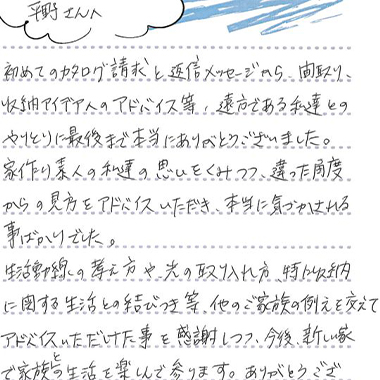 平野さんへ
初めてのカタログ請求と返信メッセージから、間取り、
収納アイデアへのアドバイス等、遠方である私達との
やりとりに最後まで本当にありがとうございました。
家作り素人の私達の思いをくみつつ、違った角度
からの見方をアドバイスいただき、本当に気づかされる
事ばかりでした。
生活動線の考え方や、光の取り入れ方、特に収納
に関する生活との結びつき等、他のご家族の例えを交えて
アドバイスいただけた事を感謝しつつ、今後、新しい家
で家族との生活を楽しんで参ります。ありがとうござ